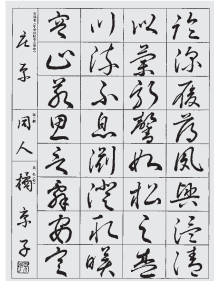 臨深履薄夙興温凊
似蘭斯馨如松之盛
川流不息淵澄取暎
容止若思言辞安定
同人
橘京子